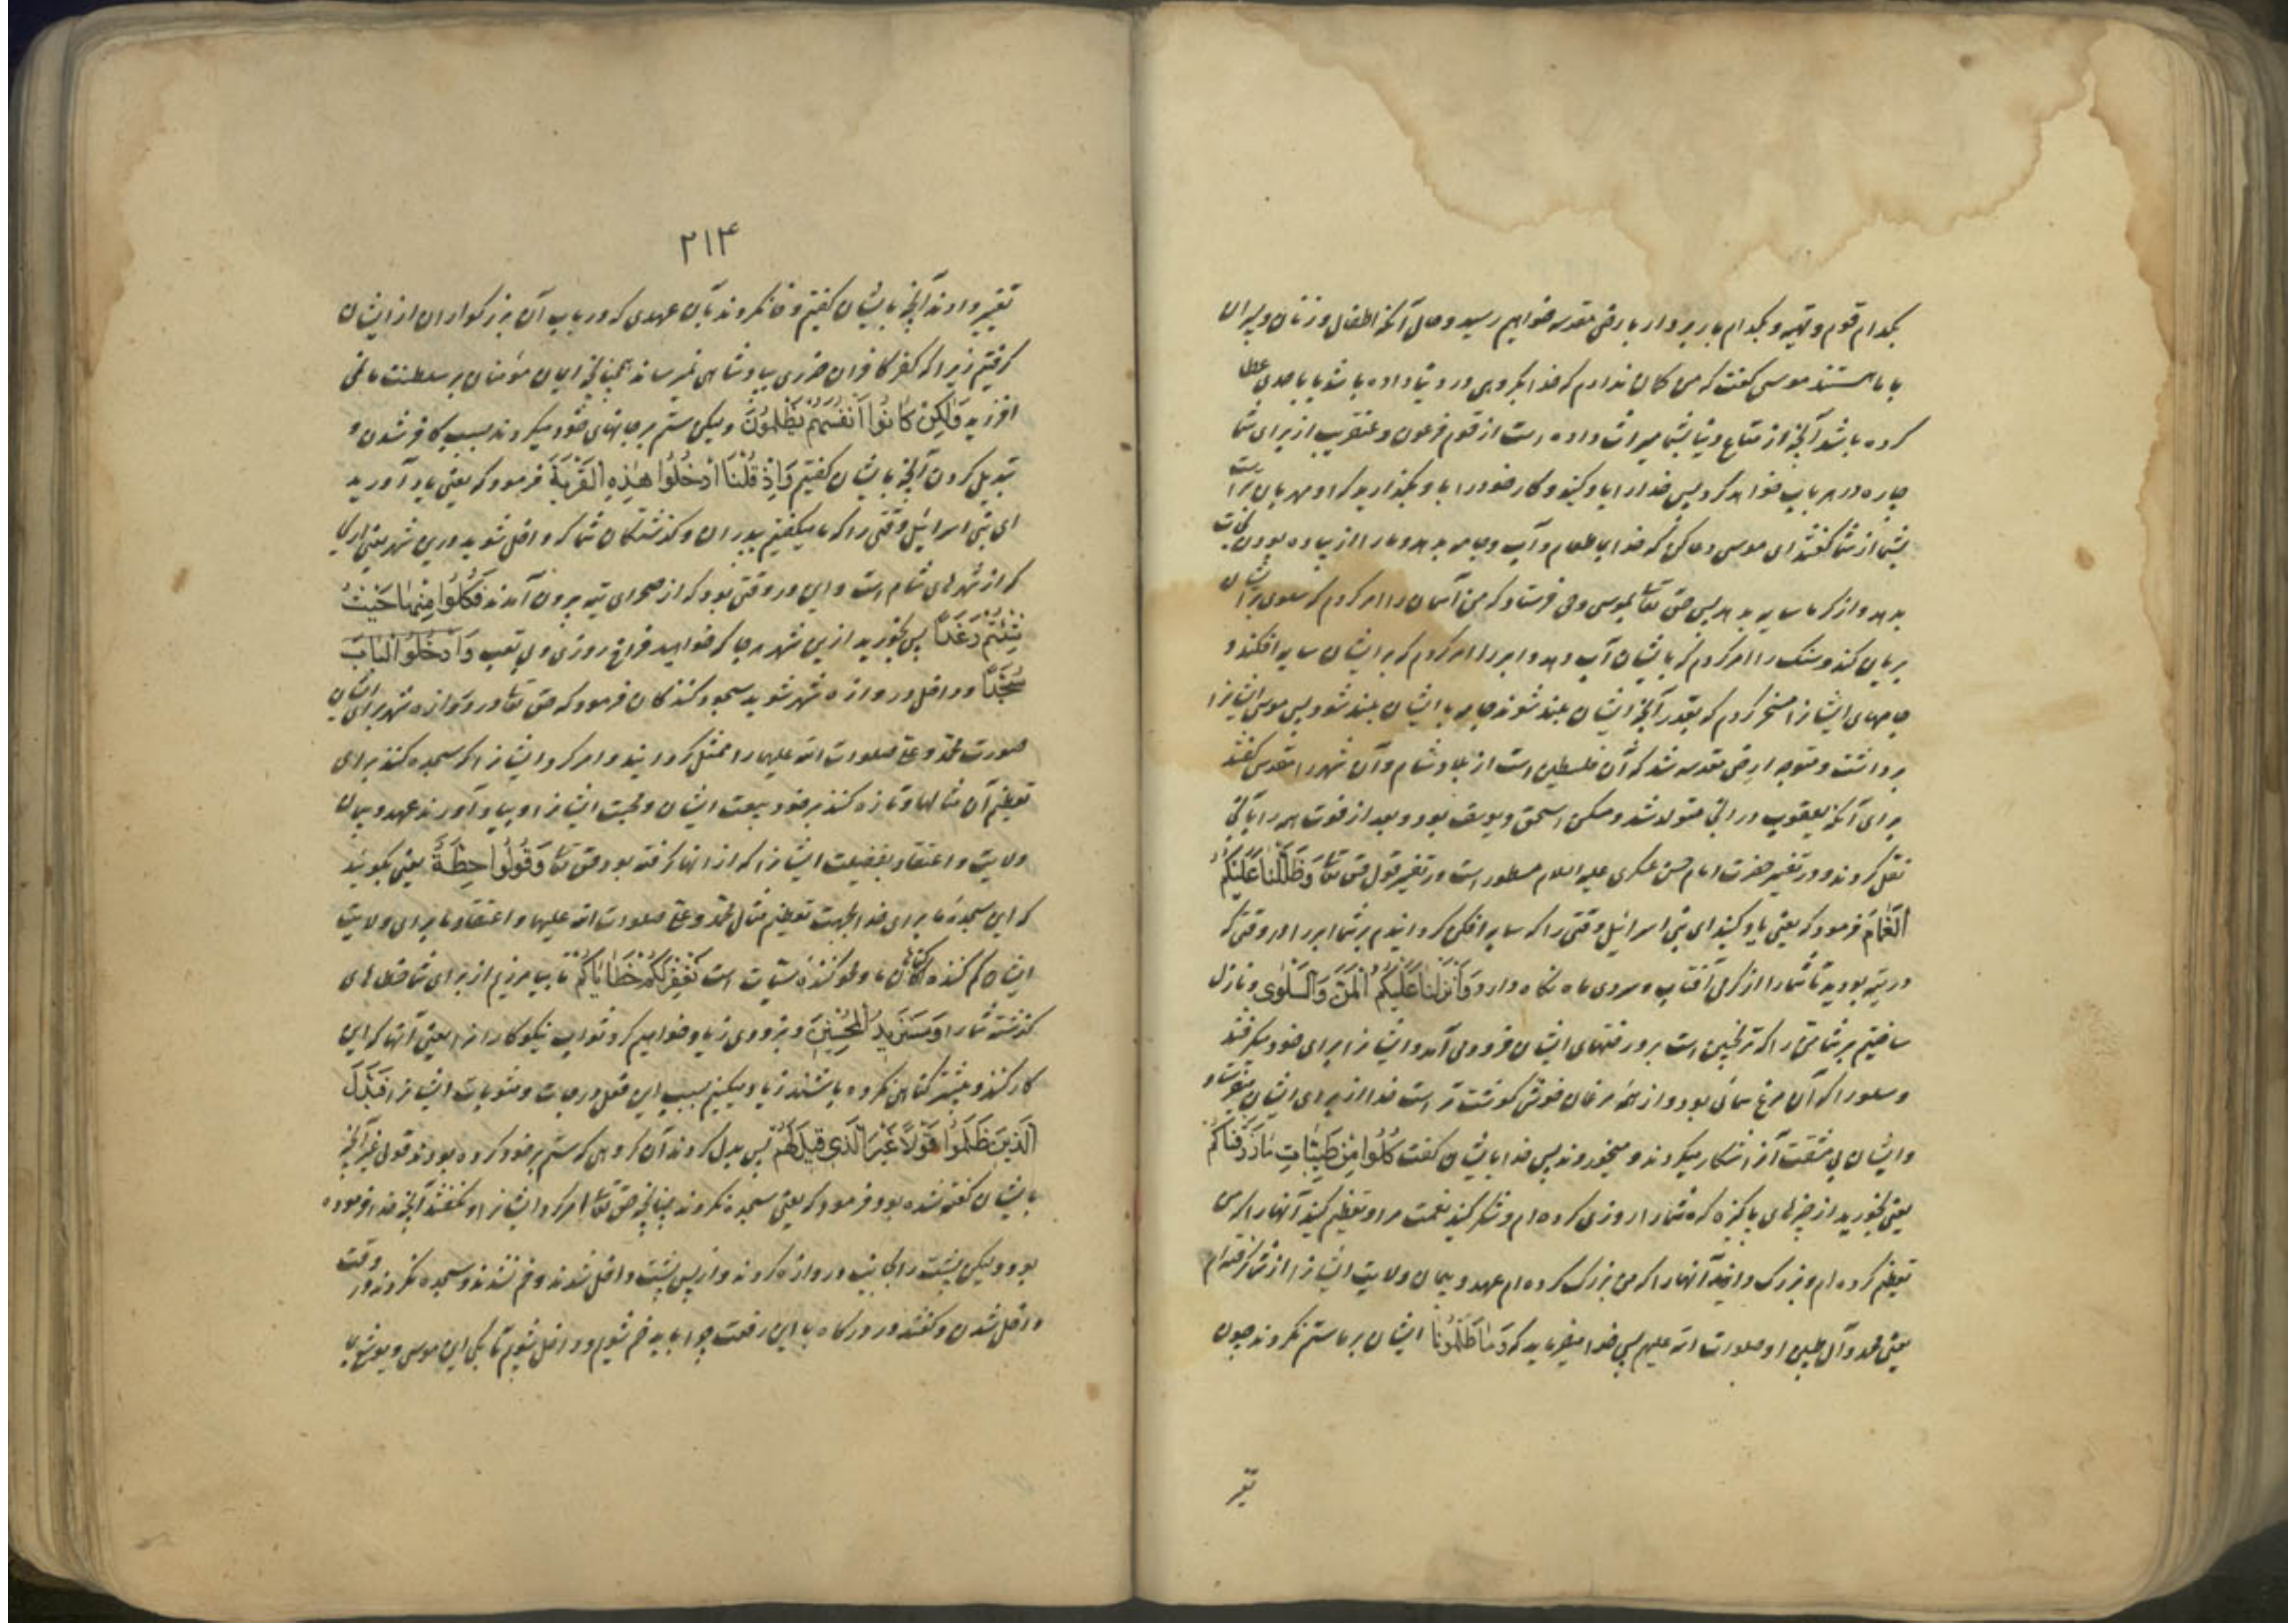 بکدام قوم و تهیه و بکدام باربردار بارض مقدسه خواهیم رسید و حال آنکه اطفال و زنان و پیران
با ما هستند موسی گفت که من گمان ندارم که خدا بگروهی در دنیا داده باشد یا با جدی عطا
کرده باشد آنچه از متاع دنیا بشما میراث داده است از قوم فرعون و عنقریب از برای شما
چاره در هر باب خواهد کرد پس خدا را یاد کنید و کار خود را باو بگذارید که او مهربان تر است
بشما از شما گفتند ای موسی دعا کن که خدا بما طعام و آب و جامه بدهد و ما را از پیاده بودن نجات
بدهد و از گرما سایه بدهد پس حق تعالی بموسی وحی فرستاد که من آسمان را امر کردم که سلوی برای ایشان
بریان کند و سنک را امر کردم که بایشان آب دهد و ابر را امر کردم که بر ایشان سایه افکند و
جامهای ایشانرا مسخر کردم که بقدر آنچه ایشان بلند شوند جامه با ایشان بلند شود پس موسی ایشانرا
برداشت و متوجه ارض مقدسه شد که آن فلسطین است از بلاد شام و آن شهر را مقدس گفتند
برای آنکه یعقوب در آنجا متولد شد و مسکن اسحق و یوسف بود و بعد از فوت همه را بآنجا
نقل کردند و در تفسیر حضرت امام حسن عسکری علیه السلام مسطور است در تفسیر قول حق تعالی وَظَلَّلْنَا عَلَيْكُمُ
الْغَمَامَ فرمود که یعنی یاد کنید ای بنی اسرائیل وقتی را که سایه افکن گردانیدم بر شما ابر را در وقتی که
در تیه بودید تا شما را از گرمی آفتاب و سردی ماه نگاه دارد وَأَنْزَلْنَا عَلَيْكُمُ الْمَنَّ وَالسَّلْوى و نازل
ساختیم بر شما من را که ترنجبین است بر درختهای ایشان فرود می آمد و ایشانرا برای خود میگرفتند
و سلوا را که آن مرغ سمانی بود و از همه مرغان خوش گوشت تر است خدا از برای ایشان میفرستاد
و ایشان بی مشقت آنرا شکار میکردند و میخوردند پس خدا بایشان گفت كُلُوا مِنْ طَيِّبَاتِ مَا رَزَقْنَاكُمْ
یعنی بخورید از چیزهای پاکیزه که شما را روزی کرده ام و شکر کنید نعمت مرا و تعظیم کنید آنها را که من
تعظیم کرده ام و بزرک دانید آنها را که من بزرک کرده ام عهد و پیمان ولایت ایشانرا از شما گرفته ام
یعنی محمد و آل طیبین او صلوات الله علیهم پس خدا میفرماید که وَمَا ظَلَمُونَا ایشان بر ما ستم نکردند چون
تغیر
۲۱۴
تغییر دادند آنچه بایشان گفتیم و وفا نکردند بآن عهدی که در باب آن بزرگواران از ایشان
گرفتیم زیرا که کفر کافران ضرری بپادشاهی نمیرساند همچنانچه ایمان مؤمنان بر سلطنت ما نمی
افزاید وَلٰكِنْ كَانُوا أَنْفُسَهُمْ يَظْلِمُونَ ولیکن ستم بر جانهای خود میکردند بسبب کافر شدن و
تبدیل کردن آنچه بایشان گفتیم وَإِذْ قُلْنَا ادْخُلُوا هٰذِهِ الْقَرْيَةَ فرمود که یعنی یاد آورید
ای بنی اسرائیل وقتی را که ما میگفتیم پدران و گذشتگان شما که داخل شوید درین شهر یعنی اریحا
که از شهرهای شام است و این در وقتی بود که از صحرای تیه بیرون آمدند فَكُلُوا مِنْهَا حَيْثُ
شِئْتُمْ رَغَدًا پس بخورید ازین شهر هر جا که خواهید فراخ روزی و بی تعب وَادْخُلُوا الْبَابَ
سُجَّدًا و داخل دروازه شهر شوید سجود کنندگان فرمود که حق تعالی در دروازه شهر برای ایشان
صورت محمد و علی صلوات الله علیهما را ممثل گردانید و امر کرد ایشانرا که سجده کنند برای
تعظیم آن مثالها و تازه کنند بر خود بیعت ایشان و محبت ایشانرا و بیاد آورند عهد و پیمان
ولایت و اعتقاد بفضیلت ایشانرا که از آنها گرفته بود حق تعالی وَقُولُوا حِطَّةٌ یعنی بگوئید
که این سجدهٔ ما برای خدا بجهت تعظیم مثال محمد و علی صلوات الله علیهما و اعتقاد ما برای ولایت
ایشان کم کننده گناهان ما و محو کنندهٔ سیئات است نَغْفِرْ لَكُمْ خَطَايَاكُمْ تا بیامرزیم از برای شما خطاهای
گذشته شما را وَسَنَزِيدُ الْمُحْسِنِينَ و بزودی زیاد خواهیم کرد ثواب نیکوکارانرا یعنی آنها که این
کار کنند و بیشتر گناهی نکرده باشند زیاد میکنیم بسبب این فعل درجات و مثوبات ایشانرا فَبَدَّلَ
الَّذِينَ ظَلَمُوا قَوْلًا غَيْرَ الَّذِي قِيلَ لَهُمْ پس بدل کردند آن گروهی که ستم بر خود کرده بودند قولی غیر آنچه
بایشان گفته شده بود فرمود که یعنی سجده نکردند چنانچه حق تعالی امر کرد ایشانرا و نگفتند آنچه خدا فرموده
بود ولیکن پشت را بجانب دروازه کردند و از پس پشت داخل شدند و خم نشدند و سجده نکردند در وقت
داخل شدن و گفتند در درگاه باین رفعت چرا باید خم شویم و داخل شویم تا بکی این موسی و یوشع با